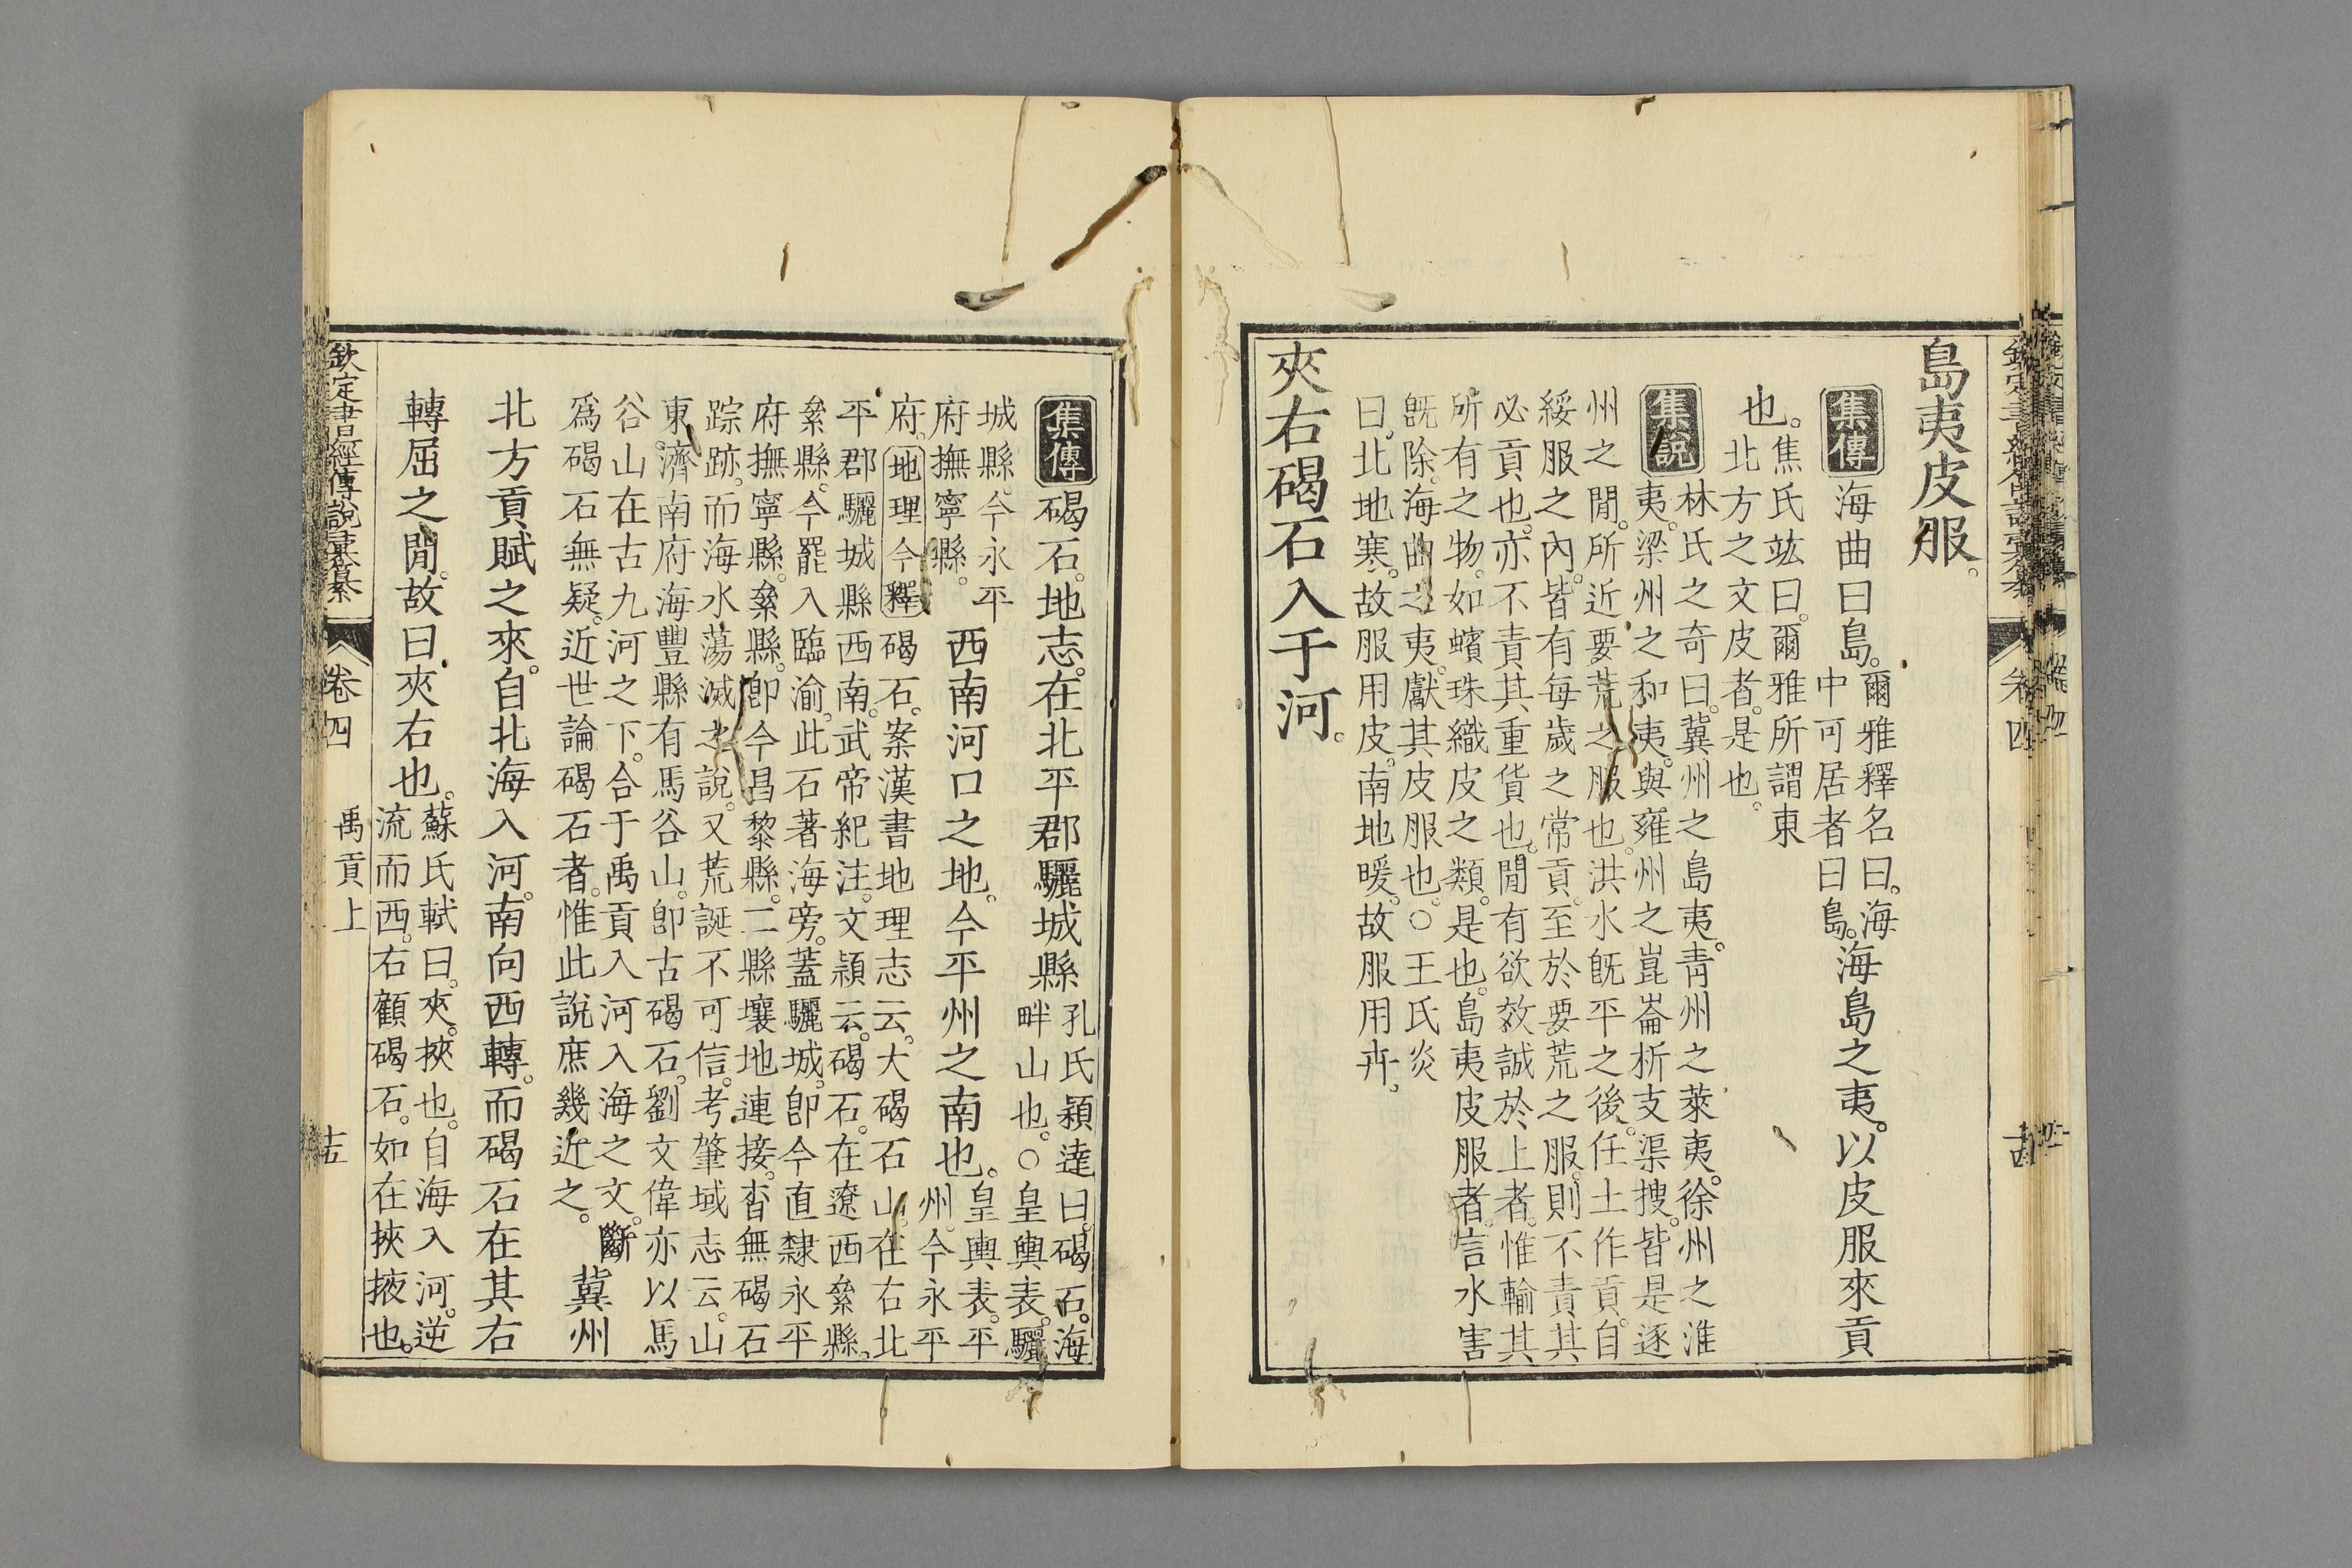 欽定書經傳說彙纂 卷四 十四
島夷皮服。
集傳 海曲曰島。爾雅釋名曰。海
中可居者曰島。海島之夷。以皮服來貢
也。焦氏竑曰。爾雅所謂東
北方之文皮者。是也。
集說 林氏之奇曰。冀州之島夷。青州之萊夷。徐州之淮
夷。梁州之和夷。與雍州之崑崙析支渠搜。皆是逐
州之閒。所近要荒之服也。洪水旣平之後。任土作貢。自
綏服之內。皆有每歲之常貢。至於要荒之服。則不責其
必貢也。亦不責其重貨也。閒有欲效誠於上者。惟輸其
所有之物。如蠙珠織皮之類。是也。島夷皮服者。言水害
旣除。海曲之夷。獻其皮服也。○王氏炎
曰。北地寒。故服用皮。南地暖。故服用卉。
夾右碣石入于河。
集傳 碣石。地志。在北平郡驪城縣孔氏穎達曰。碣石。海
畔山也。○皇輿表。驪
城縣。今永平
府撫寧縣。西南河口之地。今平州之南也。皇輿表。平
州。今永平
府。地理今釋 碣石。案漢書地理志云。大碣石山。在右北
平郡驪城縣西南。武帝紀注。文穎云。碣石。在遼西絫縣。
絫縣。今罷入臨渝。此石著海旁。蓋驪城。卽今直隸永平
府撫寧縣。絫縣。卽今昌黎縣。二縣壤地連接。杳無碣石
踪跡。而海水蕩滅之說。又荒誕不可信。考肇域志云。山
東濟南府海豐縣有馬谷山。卽古碣石。劉文偉亦以馬
谷山在古九河之下。合于禹貢入河入海之文。斷
爲碣石無疑。近世論碣石者。惟此說庶幾近之。冀州
北方貢賦之來。自北海入河。南向西轉。而碣石在其右
轉屈之閒。故曰夾右也。蘇氏軾曰。夾。挾也。自海入河。逆
流而西。右顧碣石。如在挾掖也。
欽定書經傳說彙纂 卷四 禹貢上 十五